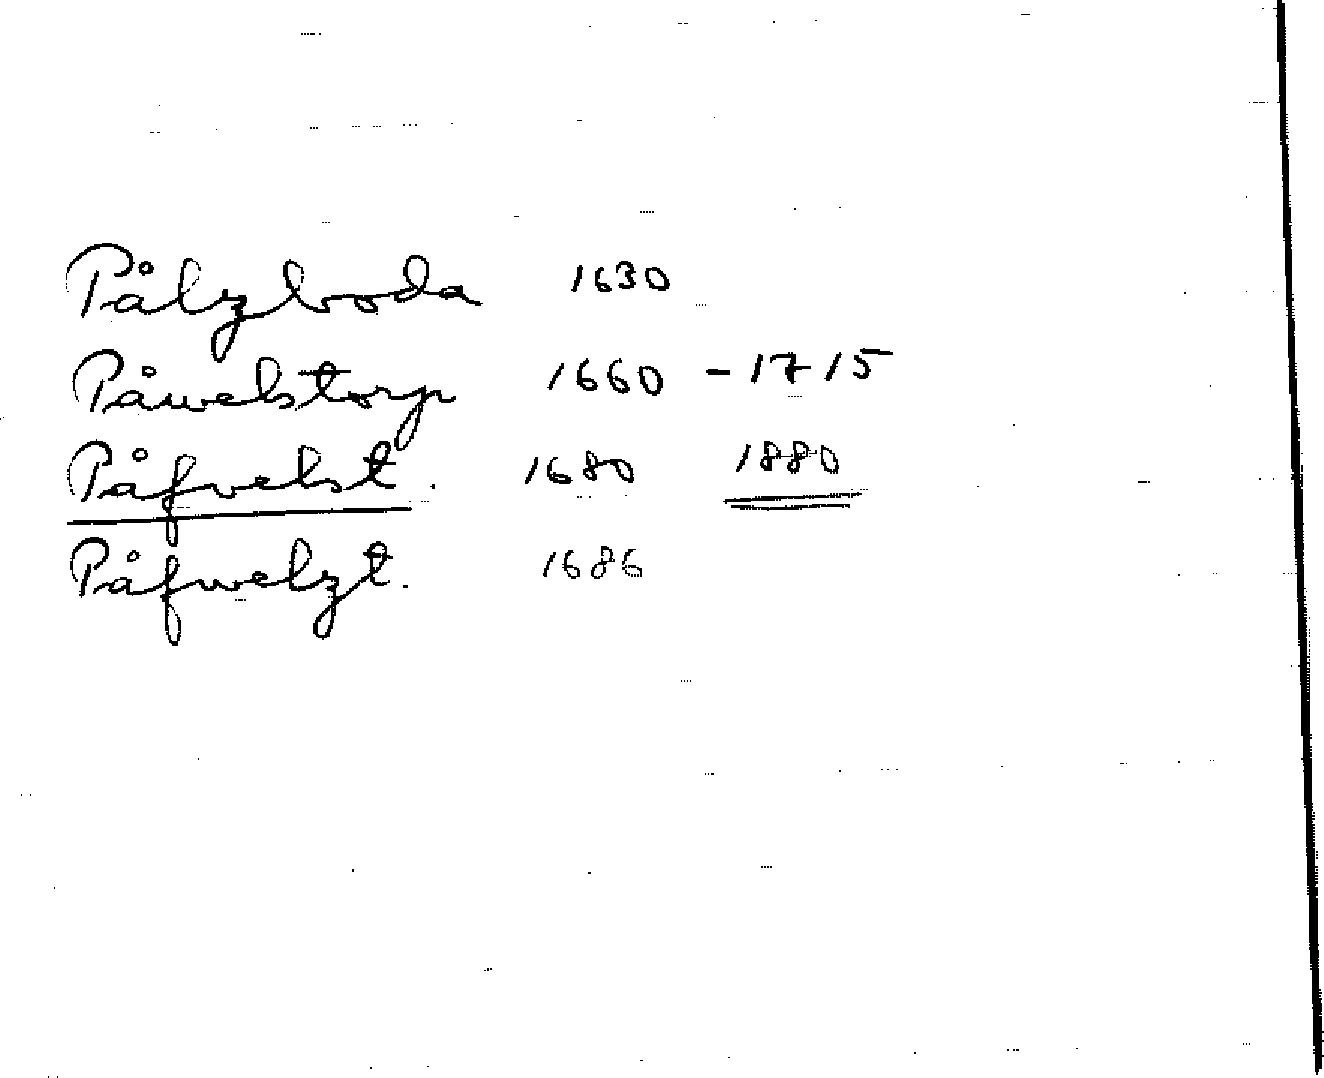 Pålzboda 1630
Påwelstorp 1660 - 1715
Påfvelst. 1680 1880
Påfwelzt. 1686